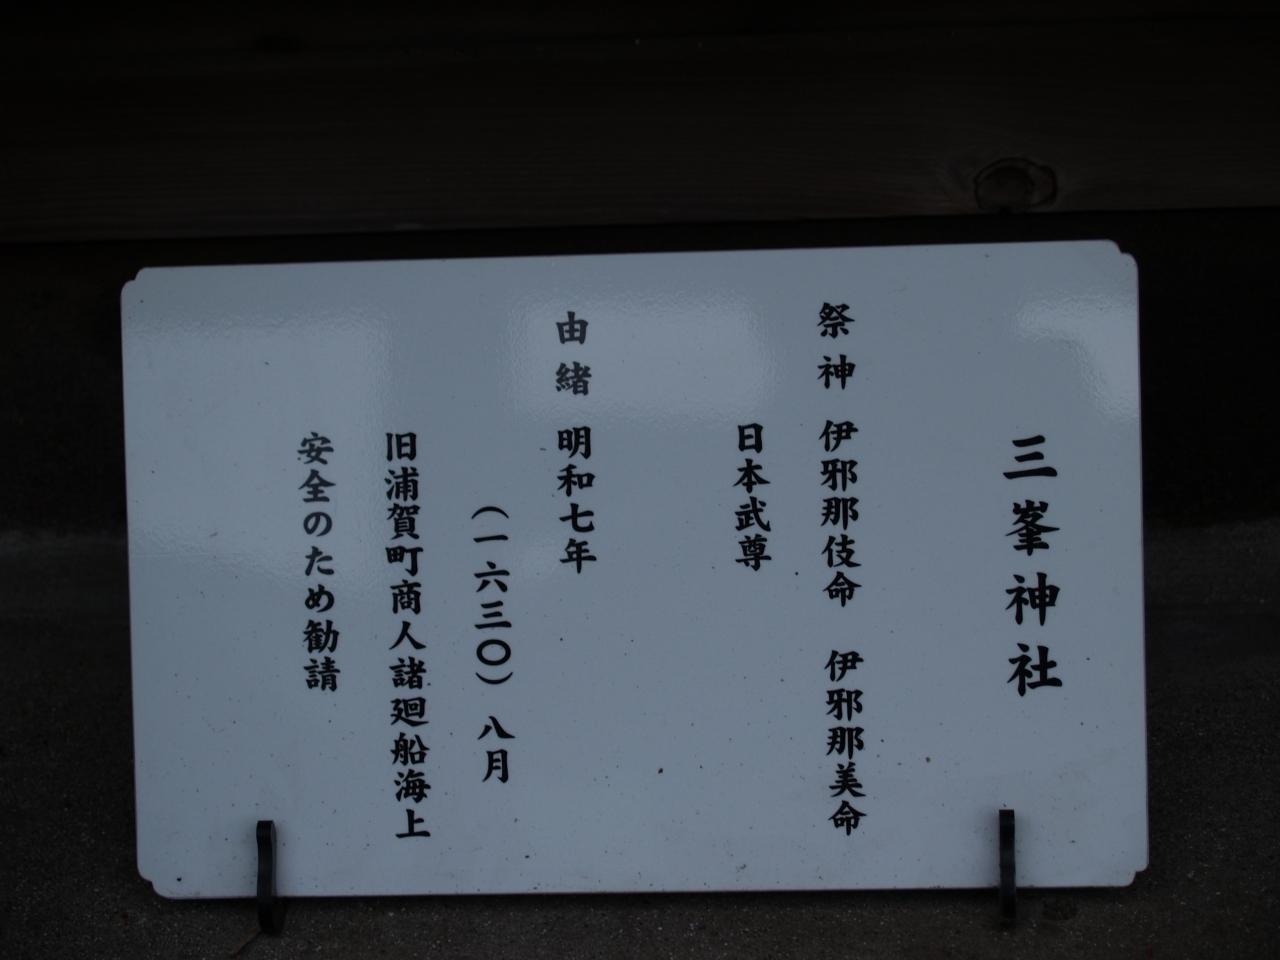 三峯神社
祭神 伊邪那伎命 伊邪那美命
日本武尊
由緒 明和七年
(一六三〇)八月
旧浦賀町商人諸廻船海上
安全のため勧請